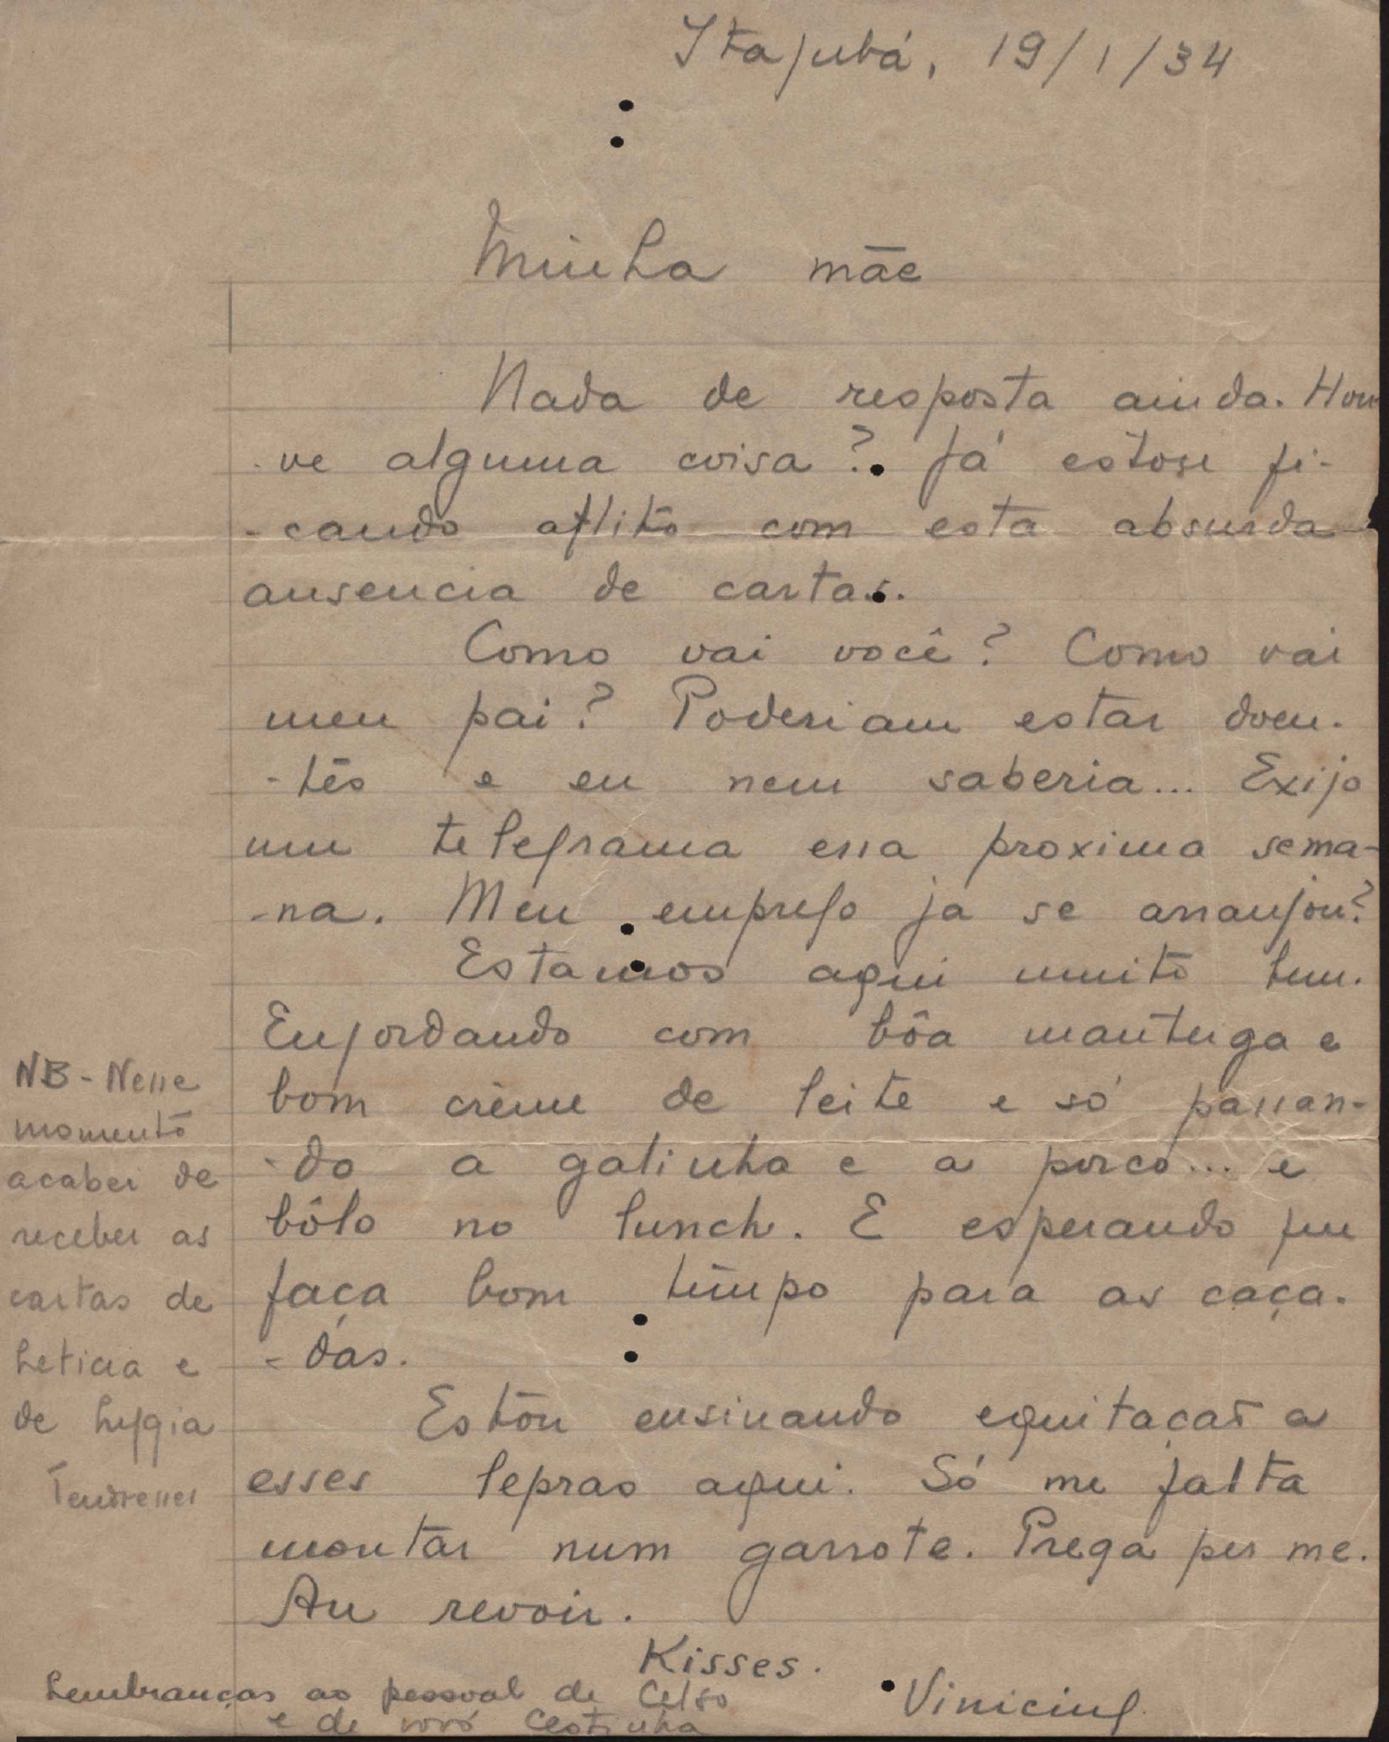 Itajubá, 19/1/34
Minha mãe
Nada de resposta ainda. Hou
-ve alguma coisa? Já estou fi-
-cando aflito com esta absurda
ausencia de cartas.
Como vai você? Como vai
meu pai? Poderiam estar doen-
-tes e eu nem saberia... Exijo
um telegrama essa proxima sema-
-na. Meu emprego ja se arranjou?
Estamos aqui muito bem.
Engordando com bôa manteiga e
bom crème de leite e só passan-
-do a galinha e a porco... e
bôlo no lunch. E esperando que
faça bom tempo para as caça-
-das.
Estou ensinando equitação a
esses lepras aqui. Só me falta
montar num garrote. Prega per me.
Au revoir.
Kisses.
Vinicius
NB - Nesse
momento
acabei de
receber as
cartas de
Leticia e
de Lygia
Tendresses
Lembranças ao pessoal de Celso
e de vovó